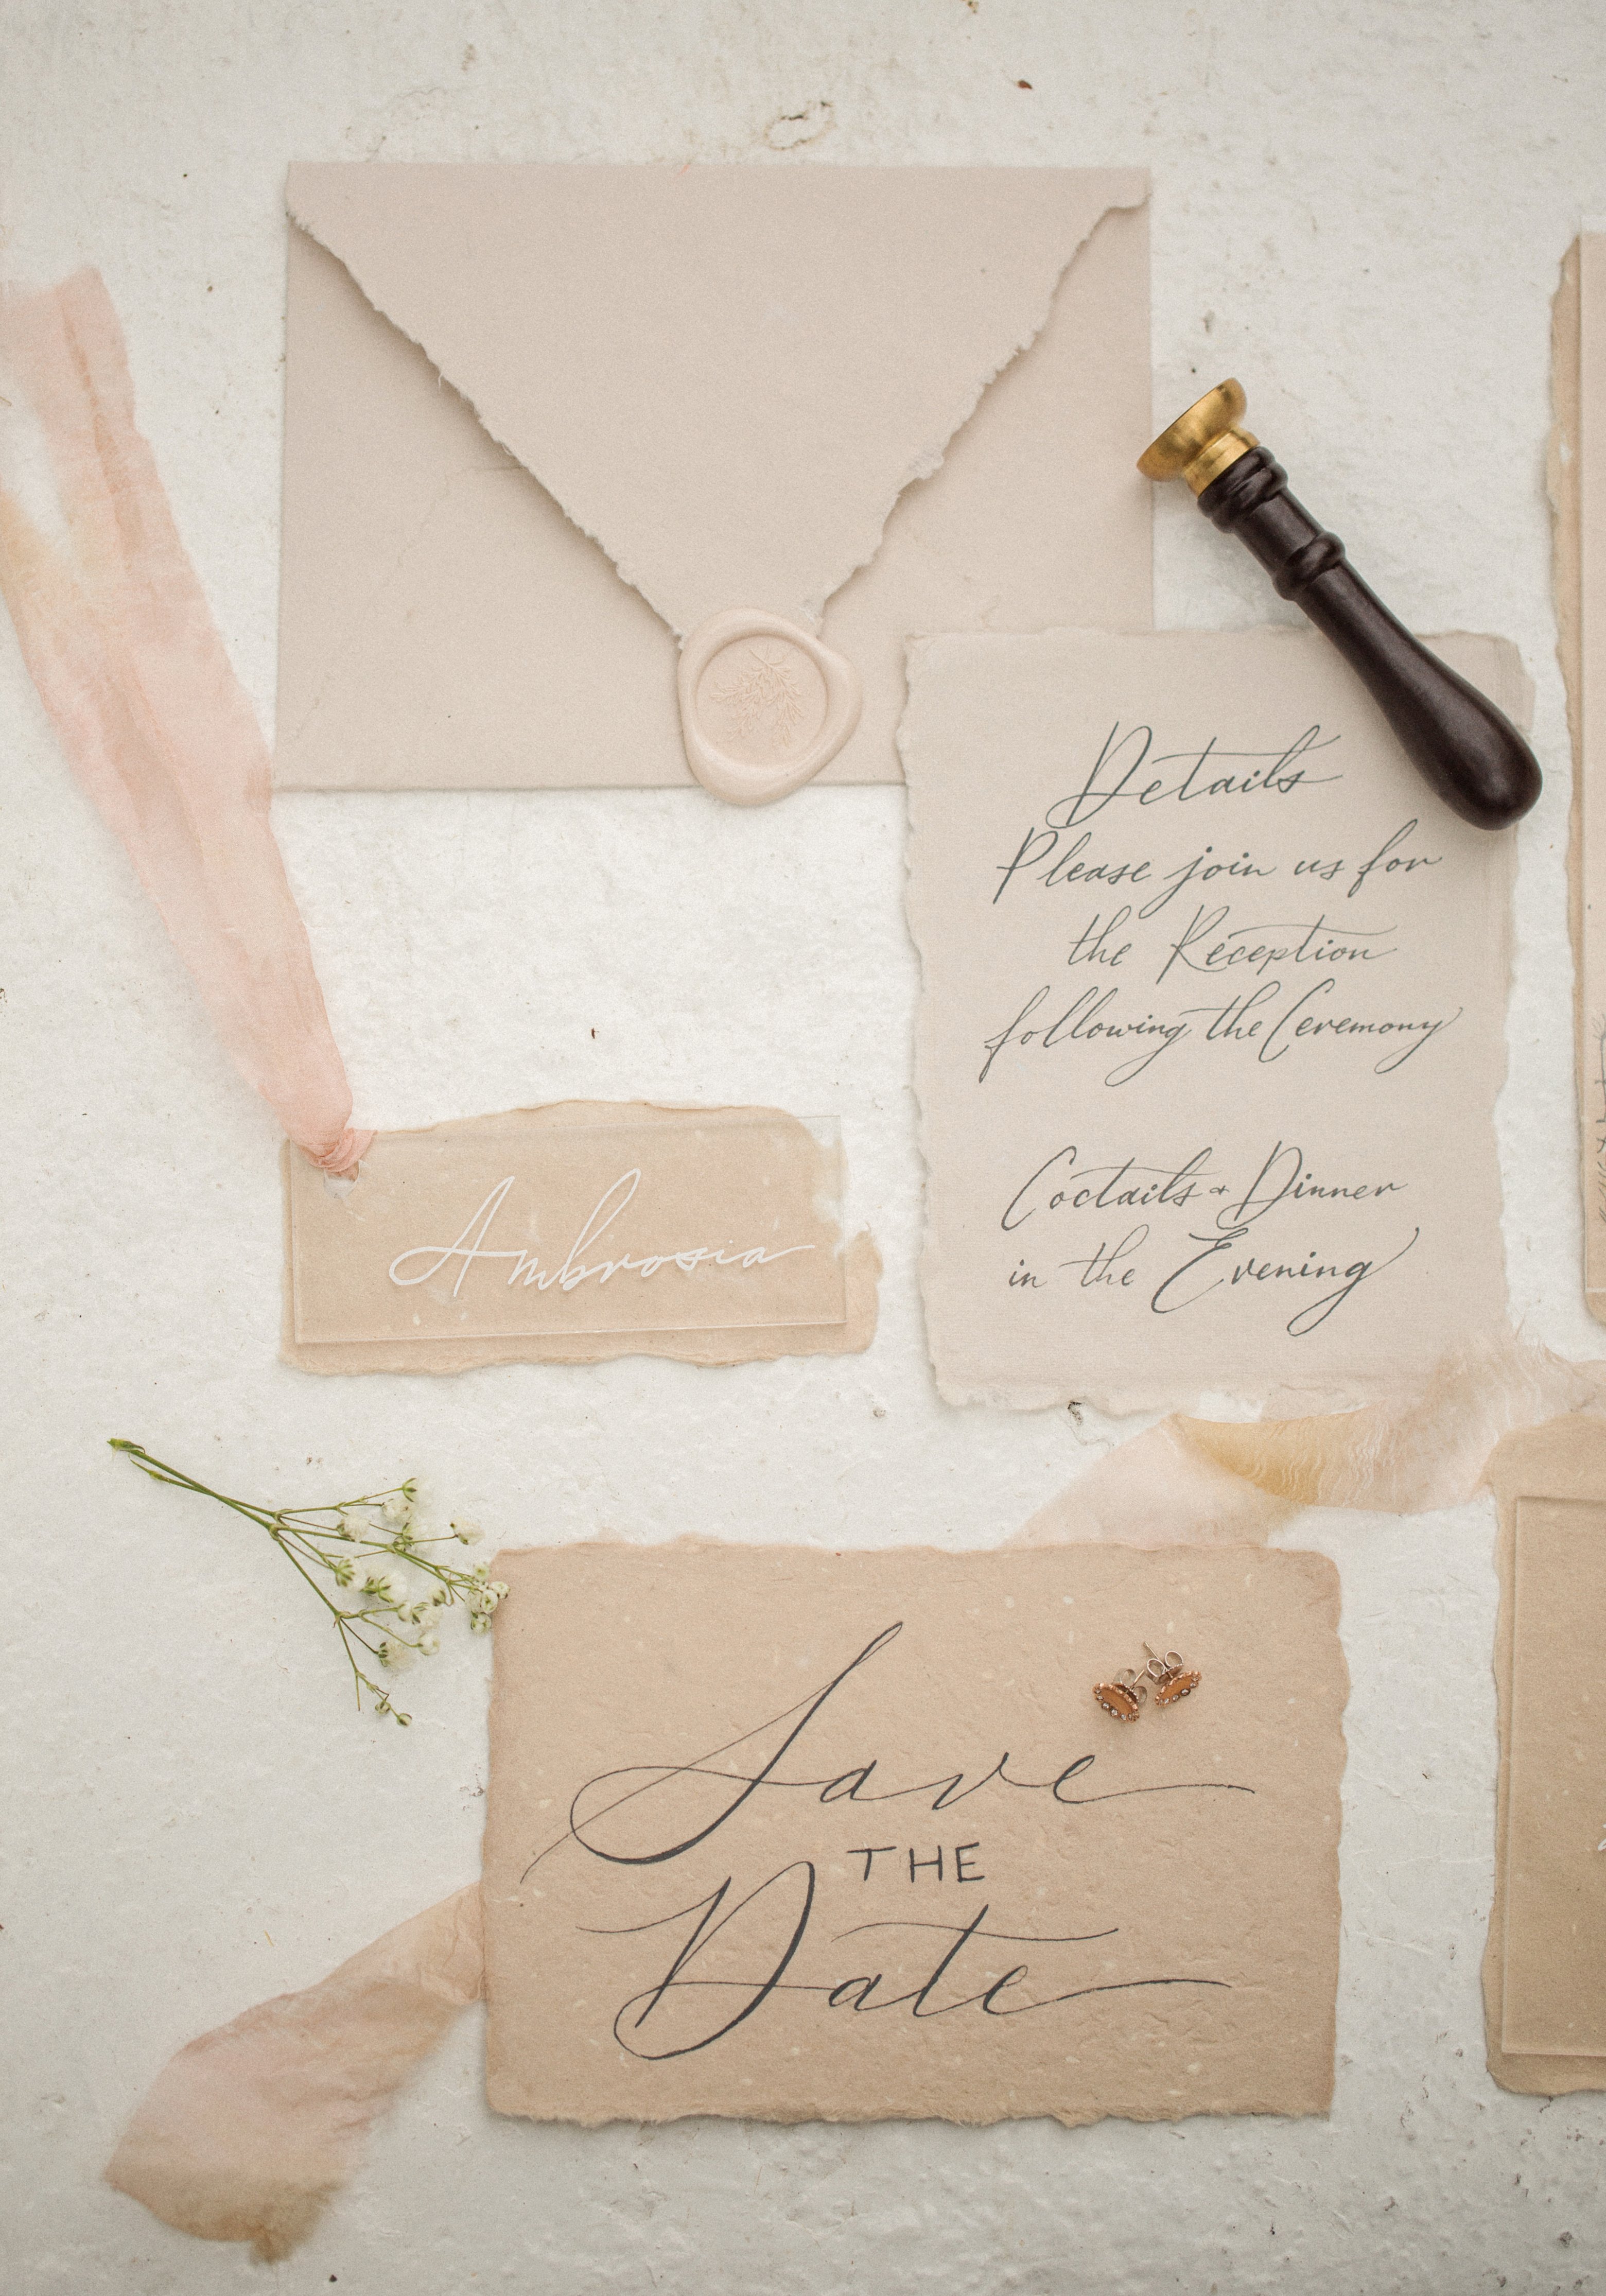 Details
Please join us for
the Reception
following the Ceremony
Coctails & Dinner
in the Evening
Ambrosia
Save
THE
Date